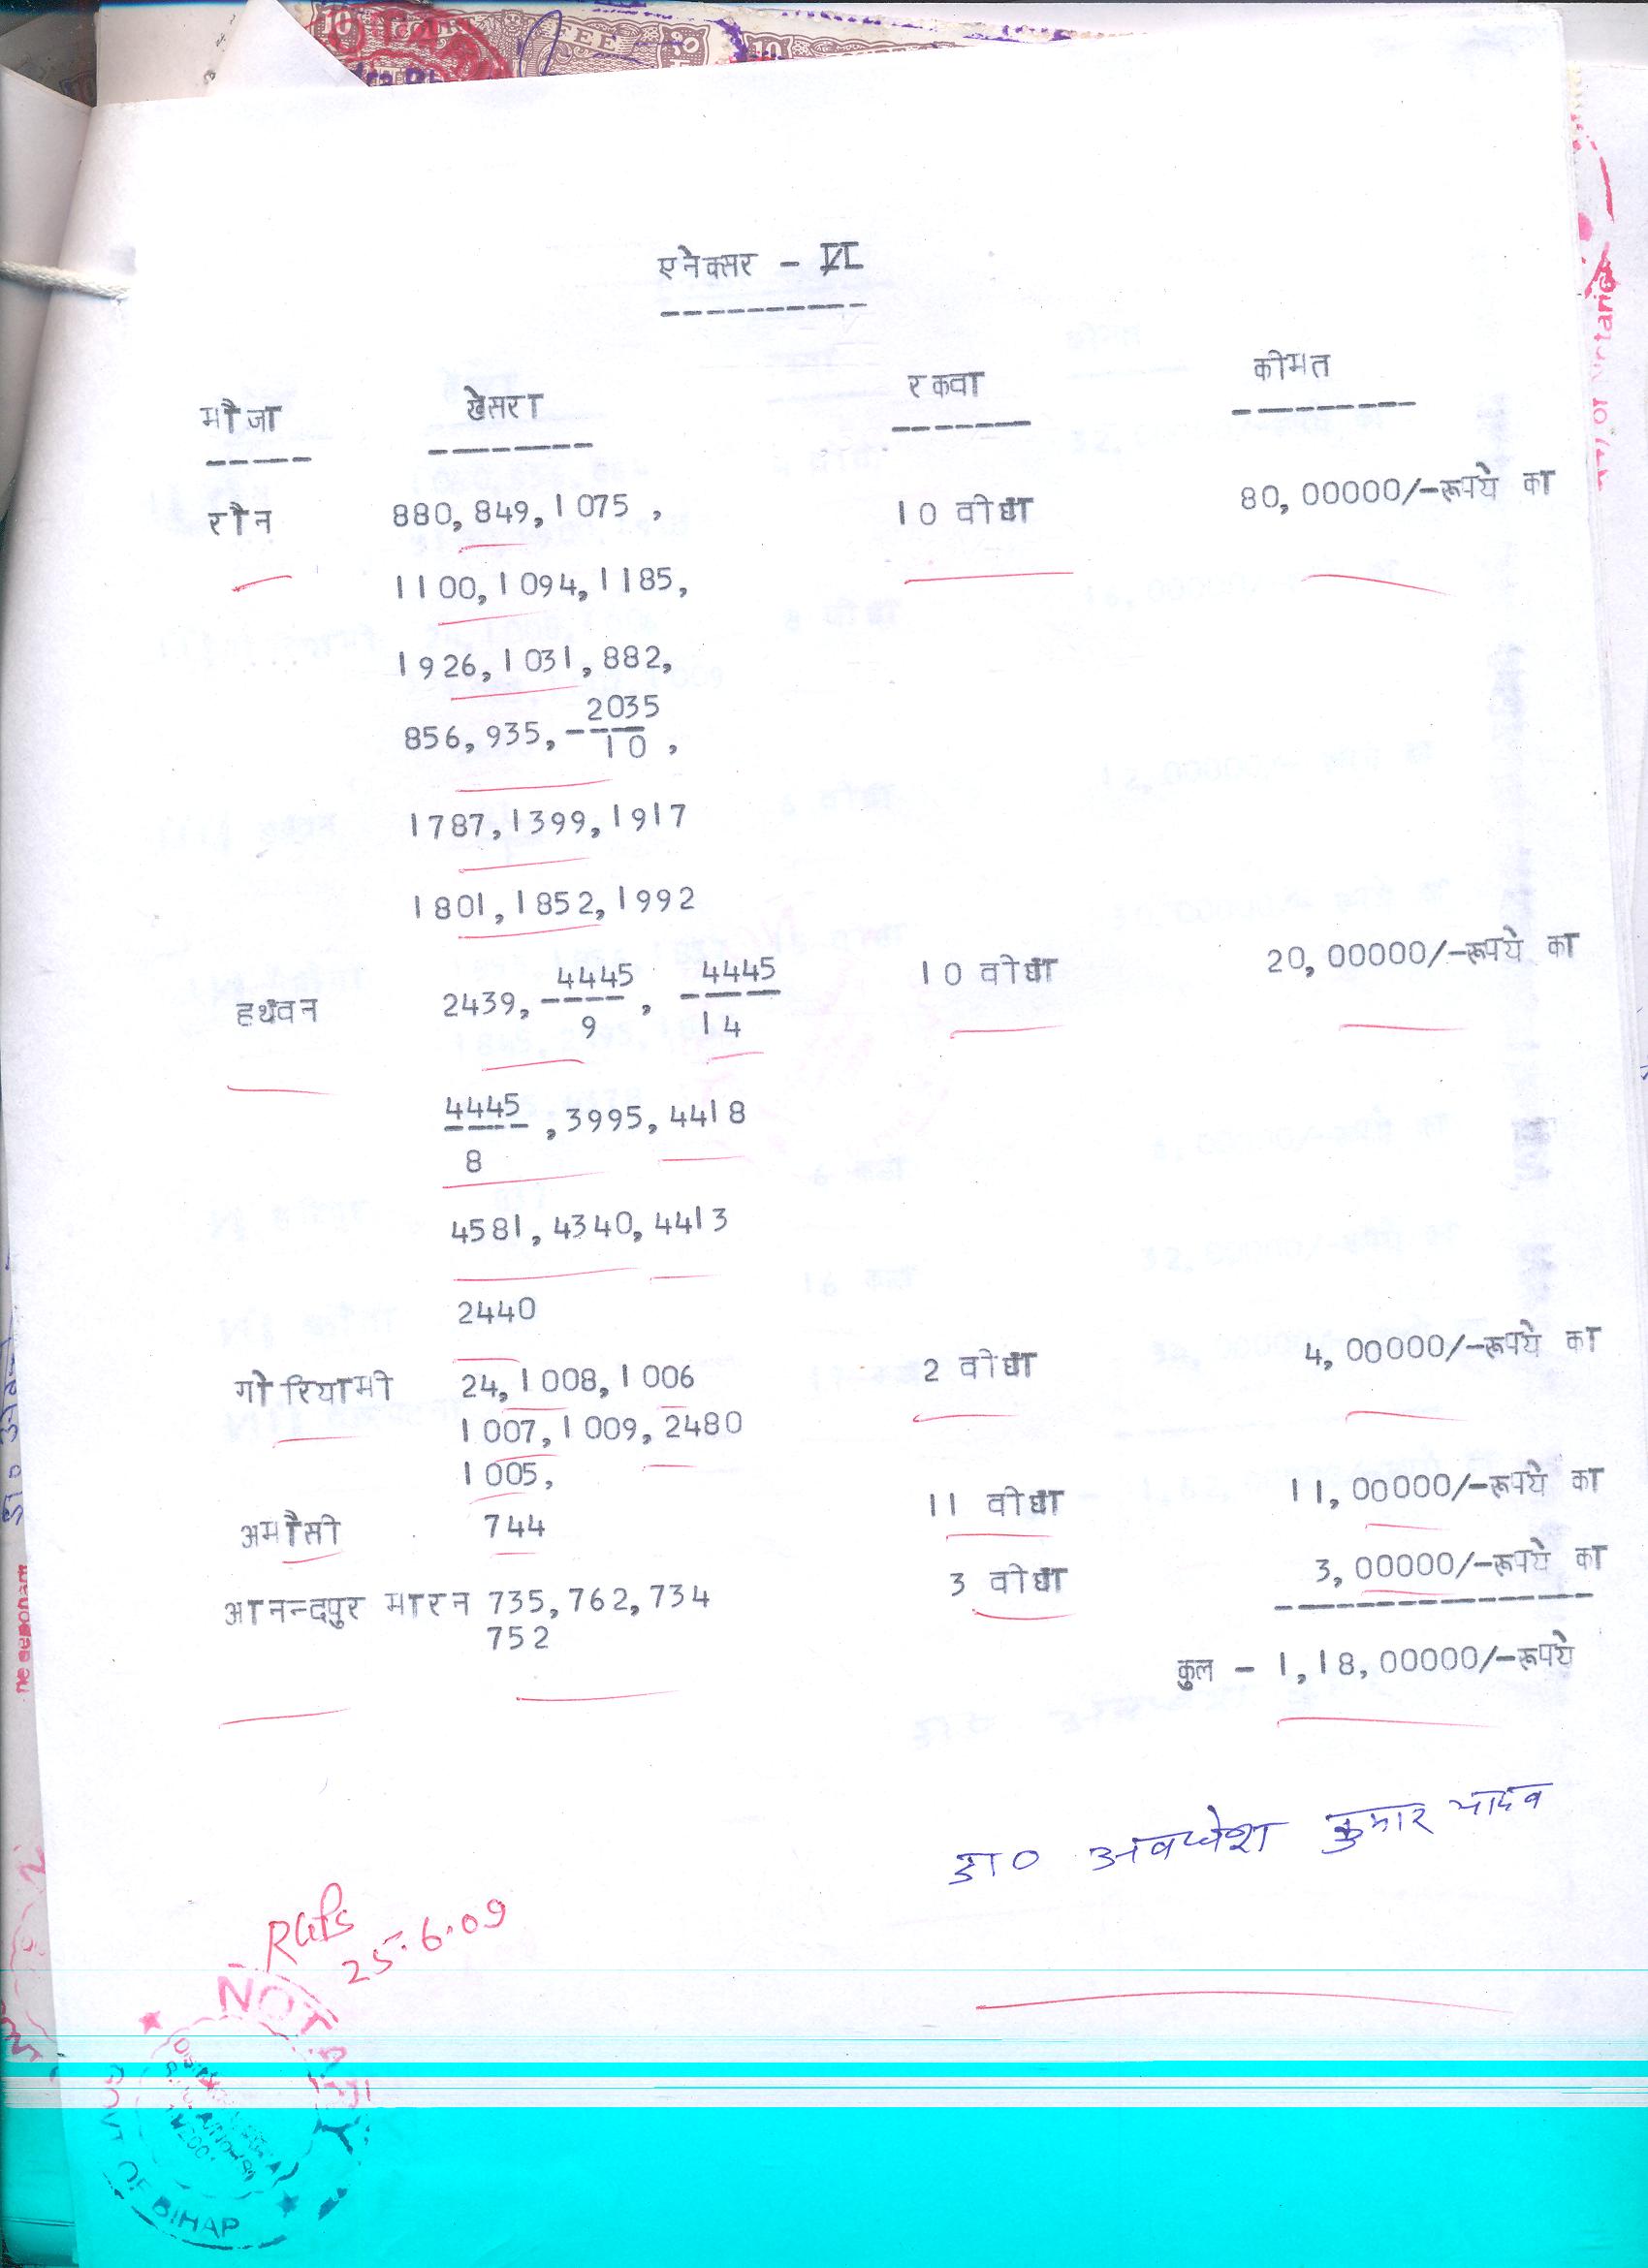 एनेक्सर - VI
मौजा खेसरा रकवा कीमत
रौन 880, 849, 1075, 10 वीघा 80,00000/-रूपये का
1100, 1094, 1185,
1926, 1031, 882,
856, 935, 2035/10,
1787, 1399, 1917
1801, 1852, 1992
हथवन 2439, 4445/9, 4445/14 10 वीघा 20,00000/-रूपये का
4445/8, 3995, 4418
4581, 4340, 4413
2440
गोरियामी 24, 1008, 1006 2 वीघा 4,00000/-रूपये का
1007, 1009, 2480
1005,
अमौसी 744 11 वीघा 11,00000/-रूपये का
आनन्दपुर मारन 735, 762, 734 3 वीघा 3,00000/-रूपये का
752
कुल - 1,18,00000/-रूपये
डा० अवधेश कुमार यादव
25.6.09
NOTARY
GOVT OF BIHAR
COURT FEE
10